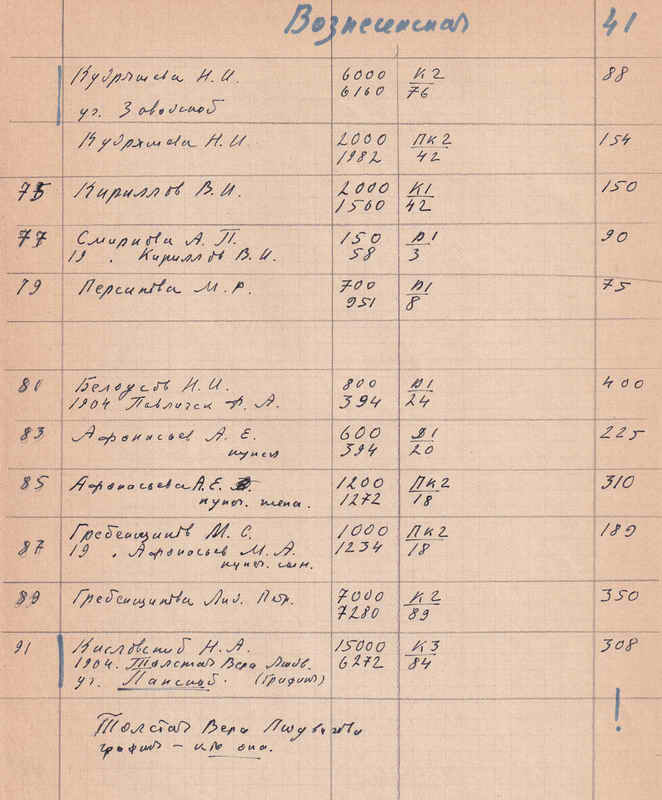 Вознесенская 41
Кудряшева Н.И. 6000 К2 88
6160 76
уг. Заводской
Кудряшева Н.И. 2000 ПК2 154
1982 42
75 Кириллов В.И. 2000 К1 150
1560 42
77 Смирнова А.П. 150 Д1 90
19 . Кириллов В.И. 58 3
79 Персиянова М. 700 Д1 75
951 8
80 Белоусов Н.И. 800 Д1 400
1904 А. 394 24
83 Афонасьев А.Е. 600 Д1 225
купец 394 20
85 Афонасьева А.Е. 1200 ПК2 310
купеч. жена. 1272 18
Гребенщиков М.С. 1000 ПК2 189
87 19 . Афонасьев М.А. 1234 18
купеч. сын.
89 Гребенщикова Лид. Петр. 7000 К2 350
7280 89
91 Кисловский Н.А. 15000 К3 308
1904. Толстая Вера 6272 84
уг. Панской. (Графиня)
!
Толстая Вера
графиня – кто она.